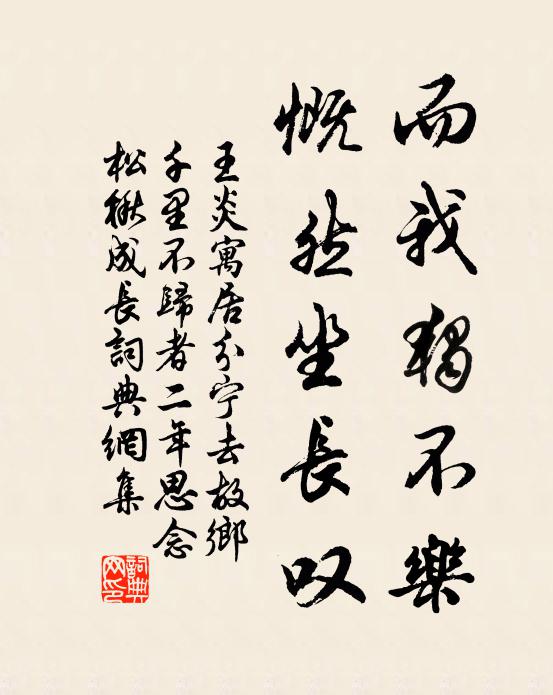 而我獨不樂
慨然坐長叹
王炎寓居分宁去故鄉
千里不歸者二年思念
松楸成長詞典網集
詞典网印